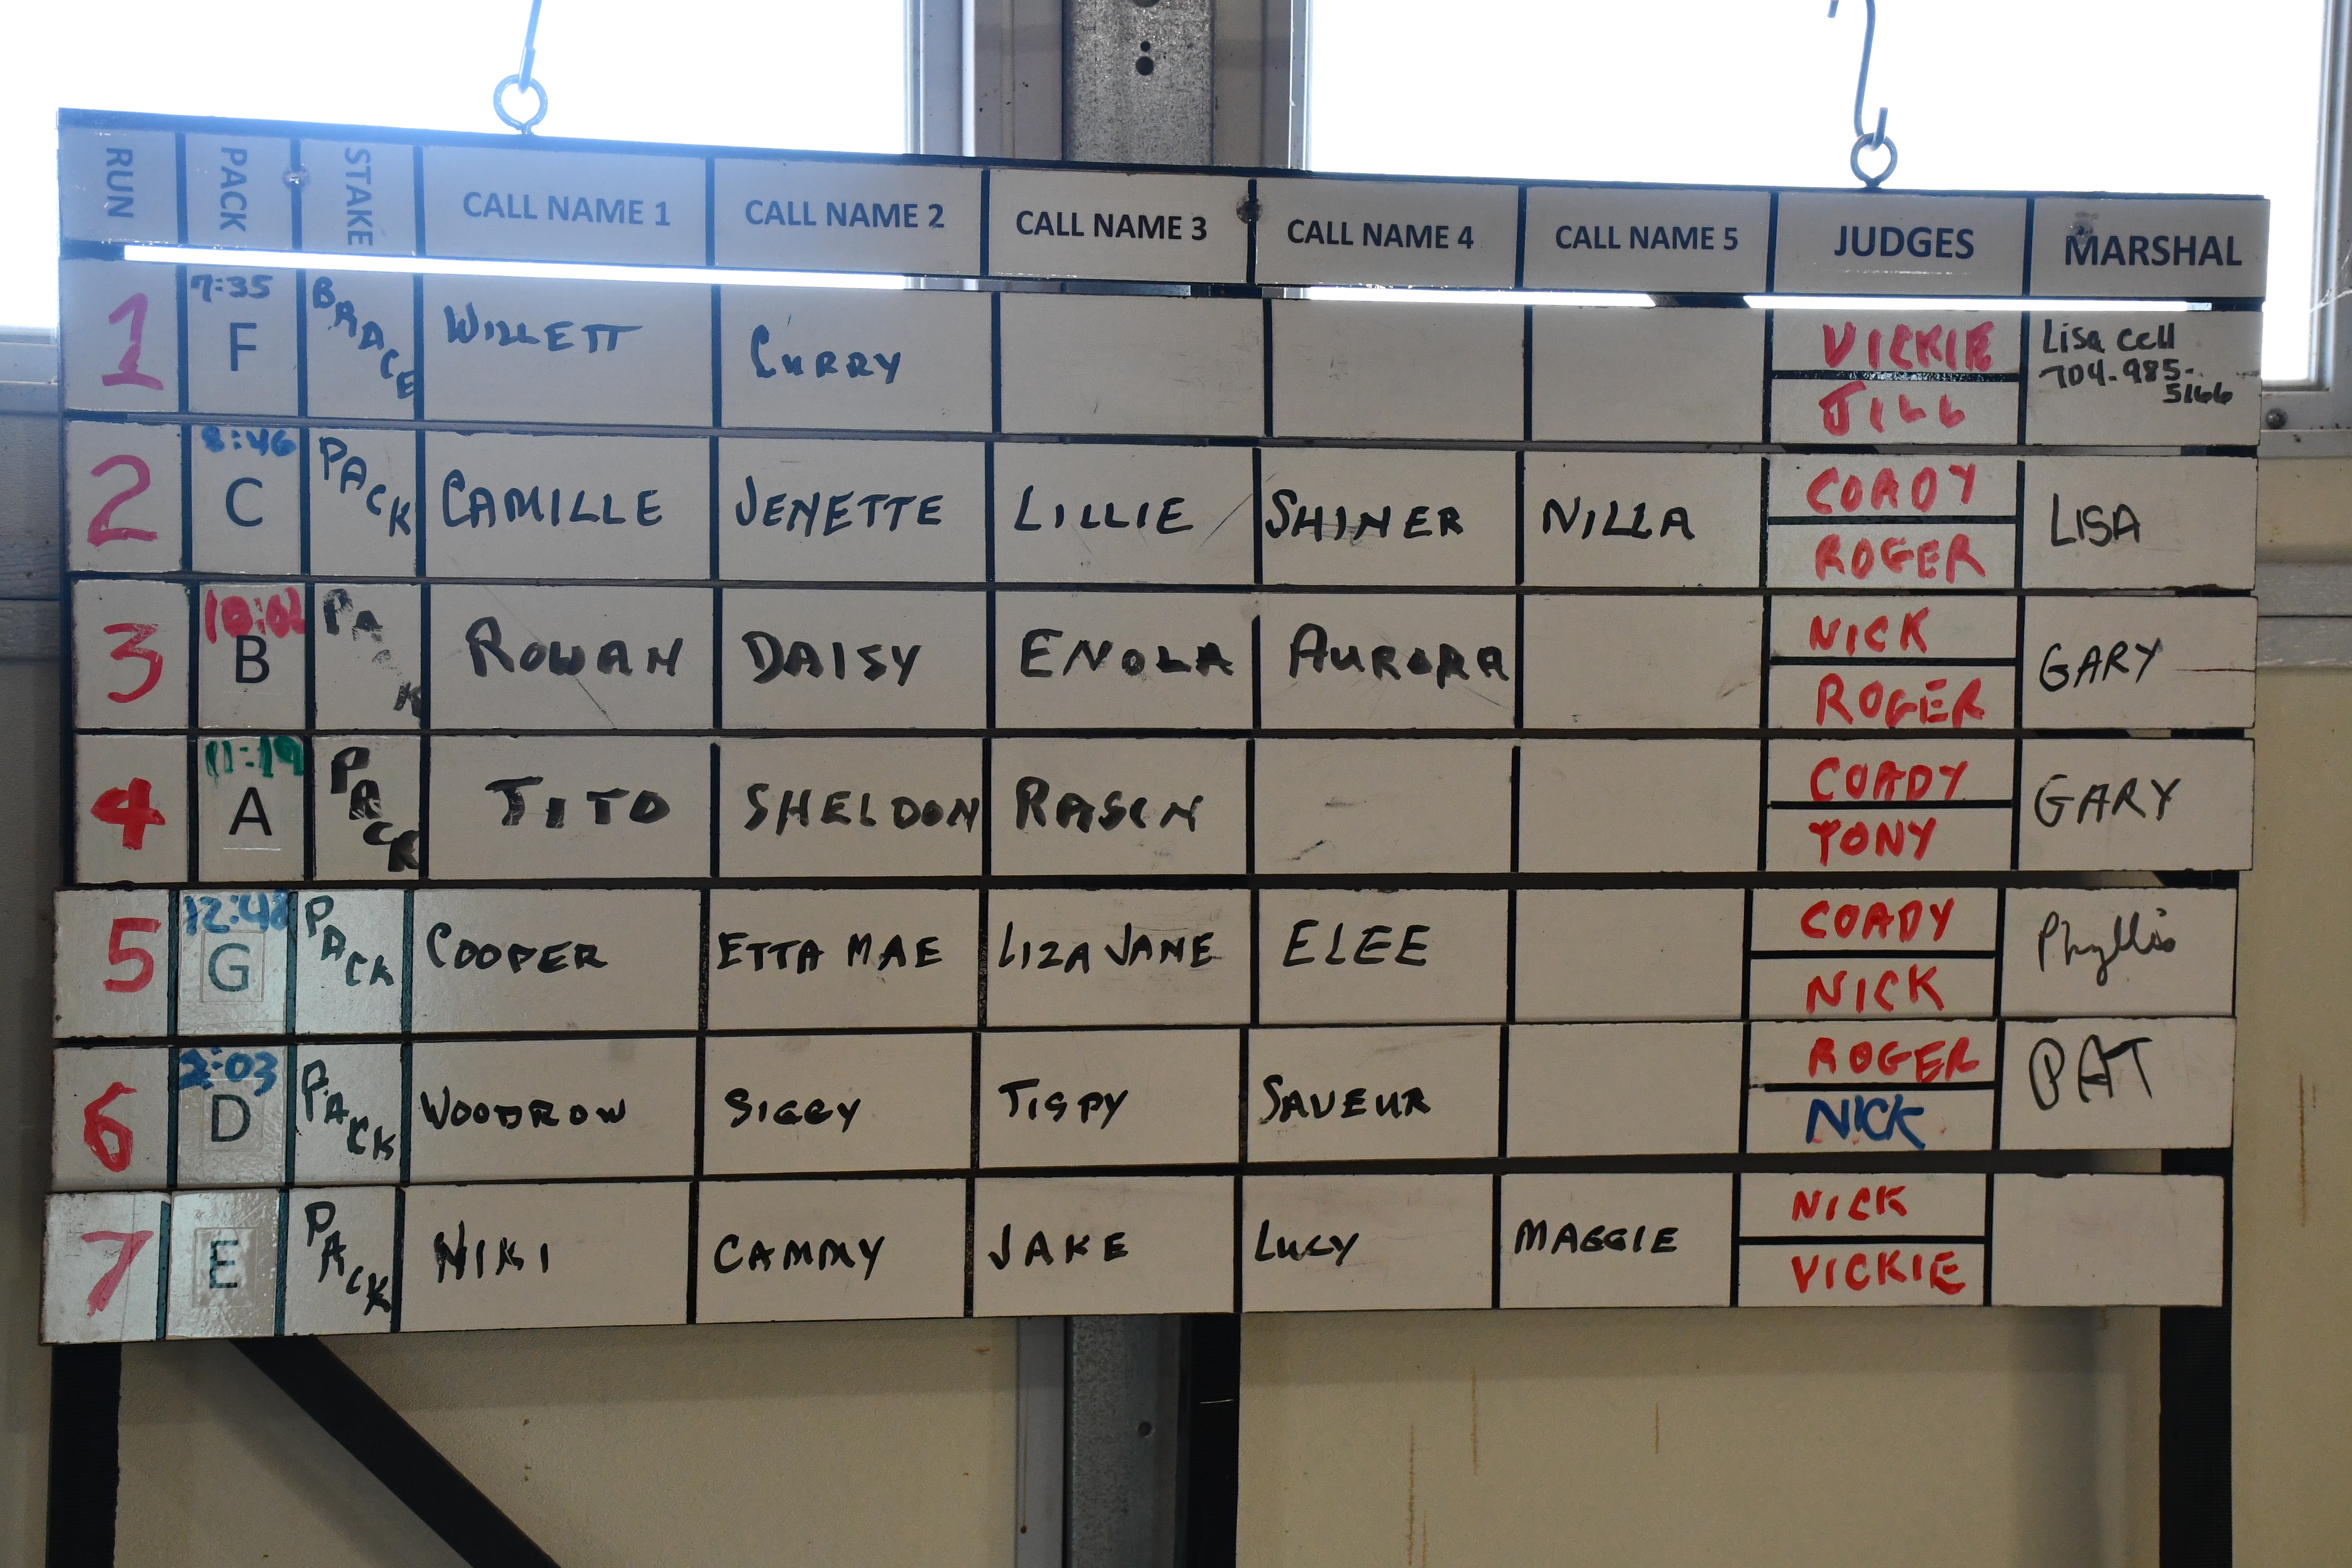 RUN PACK STAKE CALL NAME 1 CALL NAME 2 CALL NAME 3 CALL NAME 4 CALL NAME 5 JUDGES MARSHAL
1 7:35 F BRACE WILLETT CURRY VICKIE JILL Lisa cell 704-985-5166
2 8:46 C PACK CAMILLE JENETTE LILLIE SHINER NILLA COADY ROGER LISA
3 10:02 B PA K ROWAN DAISY ENOLA AURORA NICK ROGER GARY
4 11:19 A PACK TITO SHELDON RASCN COADY TONY GARY
5 12:48 G PACK COOPER ETTA MAE LIZA JANE ELEE COADY NICK Phyllis
6 2:03 D PACK WOODROW SIGGY TIGPY SAVEUR ROGER NICK PAT
7 E PACK NIKI CAMMY JAKE LUCY MAGGIE NICK VICKIE